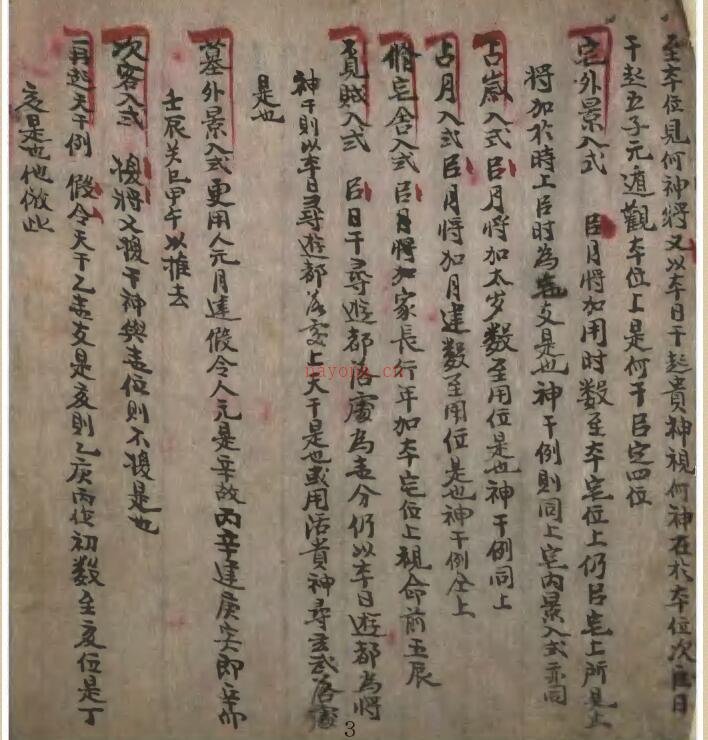 至本位見何神將又以本日干起貴神視何神在於本位次宦日
干起五子元遁觀本位上是何干㠯定四位
宅外景入式 㠯月將加用时数至本宅位上仍㠯宅上所見上
將加於時上㠯时為宅支是也神干例則同上宅内景入式亦同
占歲入式㠯月將加太岁数至用位是也神干例同上
占月入式㠯月將加月建数至用位是也神干例仝上
修宅舍入式㠯月將加家長行年加本宅位上視命前五辰
覓賊入式 㠯日干尋遊都落處為盍分仍以本日遊都為將
神干則以本日尋遊都落處上天干是也或用活貴神尋玄武落處
是也
墓外景入式更用人元月建假令人元是辛故丙辛建庚寅即辛卯
壬辰关巳甲午以推去
次客入式 换將又换干神與盍位則不换是也
再起天干例 假令天干乙盍支是亥則乙庚丙作初数至亥位是丁
亥是也他倣此
nayona.cn
3